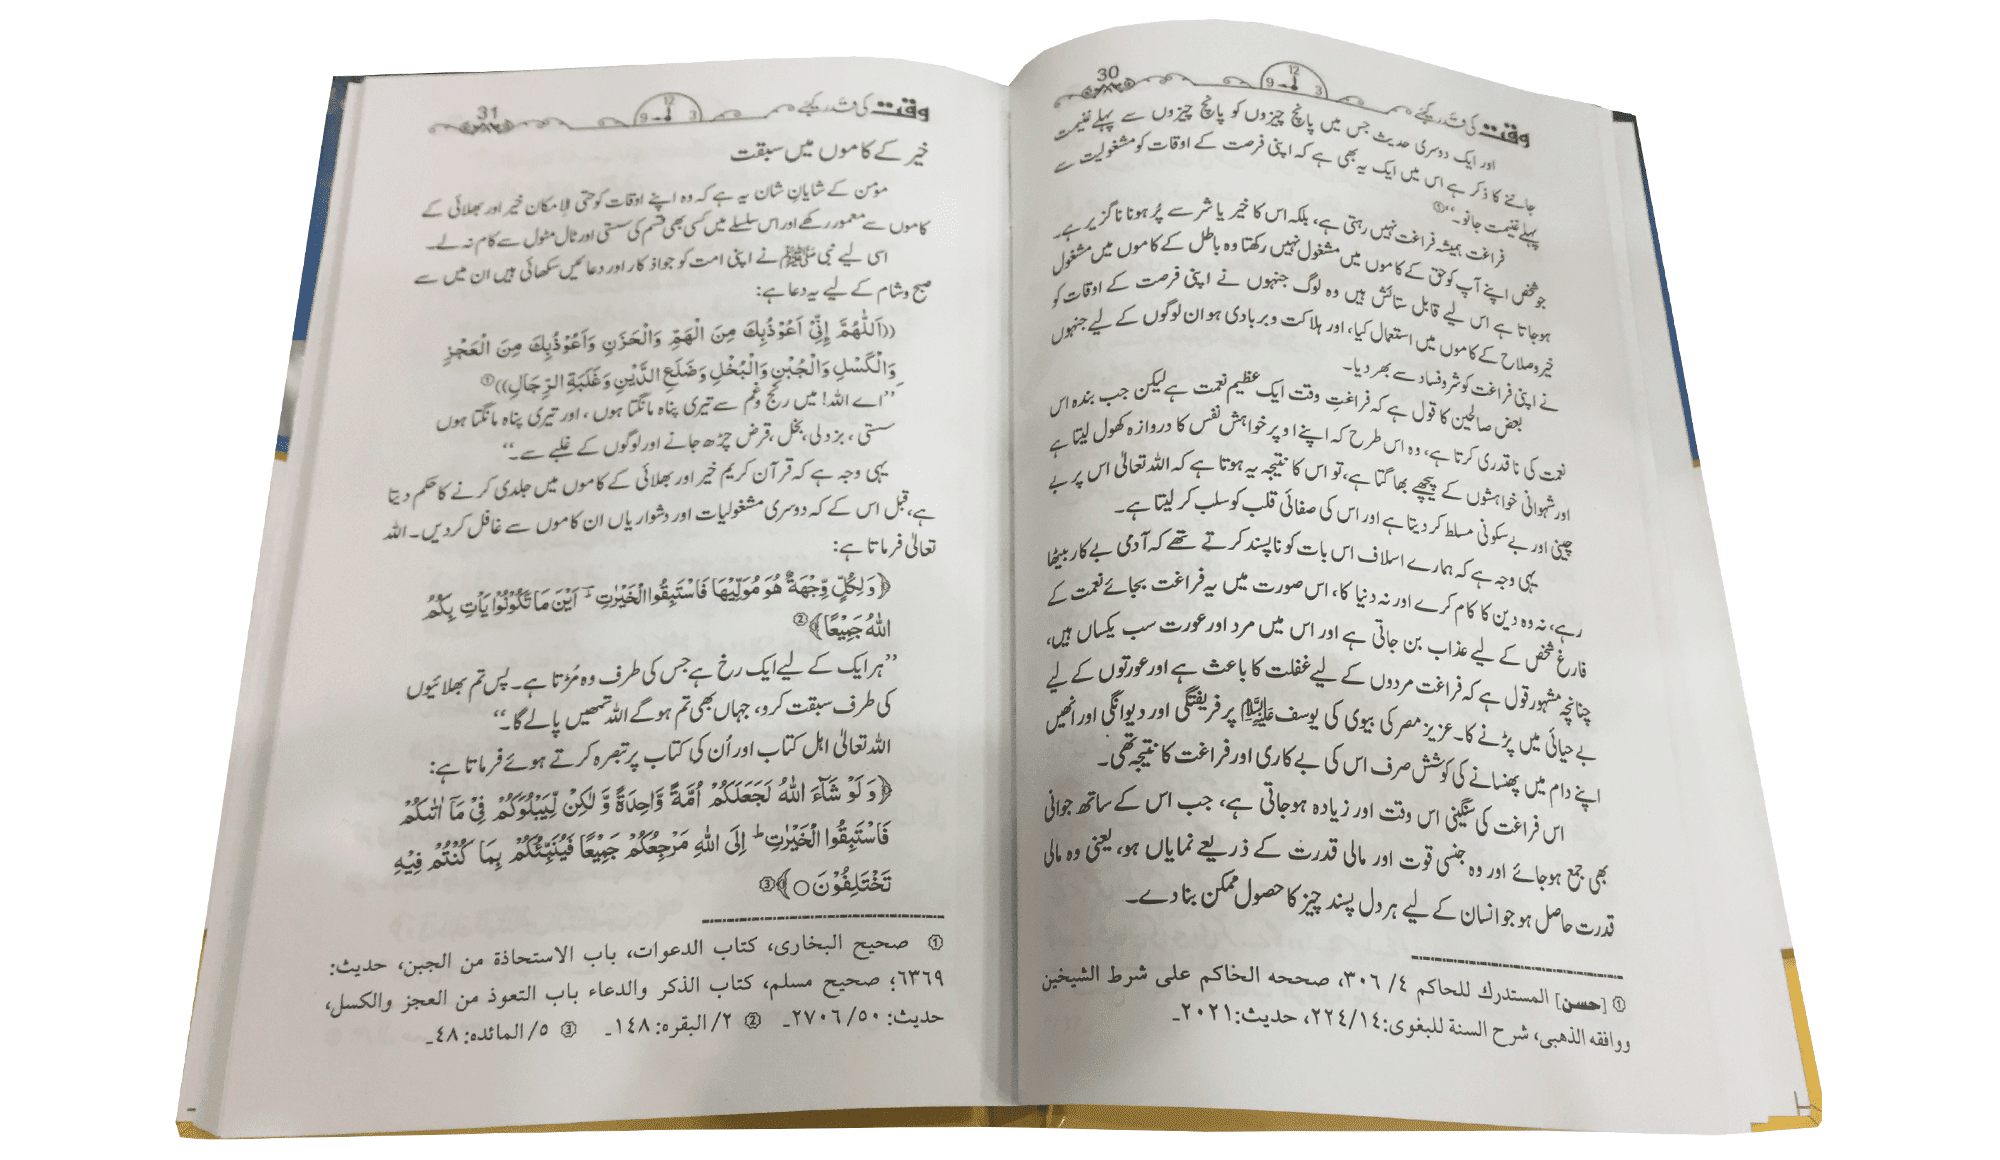 30
12
9
3
وقت کی قدر کیجئے
اور ایک دوسری حدیث جس میں پانچ چیزوں کو پانچ چیزوں سے پہلے غنیمت
جاننے کا ذکر ہے اس میں ایک یہ بھی ہے کہ اپنی فرصت کے اوقات کو مشغولیت سے
پہلے غنیمت جانو۔‘‘①
فراغت ہمیشہ فراغت نہیں رہتی ہے، بلکہ اس کا خیر یا شر سے پُر ہونا ناگزیر ہے۔
جو شخص اپنے آپ کو حق کے کاموں میں مشغول نہیں رکھتا وہ باطل کے کاموں میں مشغول
ہوجاتا ہے اس لیے قابل ستائش ہیں وہ لوگ جنہوں نے اپنی فرصت کے اوقات کو
خیر و صلاح کے کاموں میں استعمال کیا، اور ہلاکت و بربادی ہو ان لوگوں کے لیے جنہوں
نے اپنی فراغت کو شر و فساد سے بھر دیا۔
بعض صالحین کا قول ہے کہ فراغتِ وقت ایک عظیم نعمت ہے لیکن جب بندہ اس
نعمت کی ناقدری کرتا ہے، وہ اس طرح کہ اپنے اوپر خواہش نفس کا دروازہ کھول لیتا ہے
اور شہوانی خواہشوں کے پیچھے بھاگتا ہے، تو اس کا نتیجہ یہ ہوتا ہے کہ اللہ تعالیٰ اس پر بے
چینی اور بے سکونی مسلط کر دیتا ہے اور اس کی صفائی قلب کو سلب کر لیتا ہے۔
یہی وجہ ہے کہ ہمارے اسلاف اس بات کو ناپسند کرتے تھے کہ آدمی بے کار بیٹھا
رہے، نہ وہ دین کا کام کرے اور نہ دنیا کا، اس صورت میں یہ فراغت بجائے نعمت کے
فارغ شخص کے لیے عذاب بن جاتی ہے اور اس میں مرد اور عورت سب یکساں ہیں،
چنانچہ مشہور قول ہے کہ فراغت مردوں کے لیے غفلت کا باعث ہے اور عورتوں کے لیے
بے حیائی میں پڑنے کا۔ عزیز مصر کی بیوی کی یوسف علیہ السلام پر فریفتگی اور دیوانگی اور انھیں
اپنے دام میں پھنسانے کی کوشش صرف اس کی بے کاری اور فراغت کا نتیجہ تھی۔
اس فراغت کی سنگینی اس وقت اور زیادہ ہوجاتی ہے، جب اس کے ساتھ جوانی
بھی جمع ہوجائے اور وہ جنسی قوت اور مالی قدرت کے ذریعے نمایاں ہو، یعنی وہ مالی
قدرت حاصل ہو جو انسان کے لیے ہر دل پسند چیز کا حصول ممکن بنا دے۔
① [حسن] المستدرك للحاكم ٤/ ٣٠٦، صححه الخاكم على شرط الشيخين
ووافقه الذهبى، شرح السنة للبغوى:٢٢٤/١٤، حديث:٢٠٢١۔
31
12
9
3
وقت کی قدر کیجئے
خیر کے کاموں میں سبقت
مؤمن کے شایانِ شان یہ ہے کہ وہ اپنے اوقات کو حتی الامکان خیر اور بھلائی کے
کاموں سے معمور رکھے اور اس سلسلے میں کسی بھی قسم کی سستی اور ٹال مٹول سے کام نہ لے۔
اسی لیے نبی ﷺ نے اپنی امت کو جو اذکار اور دعائیں سکھائی ہیں ان میں سے
صبح و شام کے لیے یہ دعا ہے:
((اَللّٰهُمَّ إِنِّيْ اَعُوْذُبِكَ مِنَ الْهَمِّ وَالْحَزَنِ وَاَعُوْذُبِكَ مِنَ الْعَجْزِ
وَالْكَسْلِ وَالْجُبْنِ وَالْبُخْلِ وَضَلَعِ الدَّيْنِ وَغَلَبَةِ الرِّجَالِ))①
’’اے اللہ! میں رنج و غم سے تیری پناہ مانگتا ہوں، اور تیری پناہ مانگتا ہوں
سستی، بزدلی، بخل، قرض چڑھ جانے اور لوگوں کے غلبے سے۔‘‘
یہی وجہ ہے کہ قرآن کریم خیر اور بھلائی کے کاموں میں جلدی کرنے کا حکم دیتا
ہے، قبل اس کے کہ دوسری مشغولیات اور دشواریاں ان کاموں سے غافل کر دیں۔ اللہ
تعالیٰ فرماتا ہے:
﴿وَلِكُلٍّ وِّجْهَةٌ هُوَ مُوَلِّيْهَا فَاسْتَبِقُوا الْخَيْرٰتِ ۚ اَيْنَ مَا تَكُوْنُوْا يَاْتِ بِكُمُ
اللّٰهُ جَمِيْعًا﴾②
’’ہر ایک کے لیے ایک رخ ہے جس کی طرف وہ مُڑتا ہے۔ پس تم بھلائیوں
کی طرف سبقت کرو، جہاں بھی تم ہوگے اللہ تمھیں پالے گا۔‘‘
اللہ تعالیٰ اہل کتاب اور اُن کی کتاب پر تبصرہ کرتے ہوئے فرماتا ہے:
﴿وَلَوْ شَآءَ اللّٰهُ لَجَعَلَكُمْ اُمَّةً وَّاحِدَةً وَّ لٰكِنْ لِّيَبْلُوَكُمْ فِيْ مَآ اٰتٰىكُمْ
فَاسْتَبِقُوا الْخَيْرٰتِ ؕ اِلَى اللّٰهِ مَرْجِعُكُمْ جَمِيْعًا فَيُنَبِّئُكُمْ بِمَا كُنْتُمْ فِيْهِ
تَخْتَلِفُوْنَ ○﴾③
① صحيح البخارى، كتاب الدعوات، باب الاستحاذة من الجبن، حديث:
٦٣٦٩؛ صحيح مسلم، كتاب الذكر والدعاء باب التعوذ من العجز والكسل،
حديث: ٥٠/ ٢٧٠٦۔ ② ٢/ البقره: ١٤٨۔ ③ ٥/ المائده: ٤٨۔